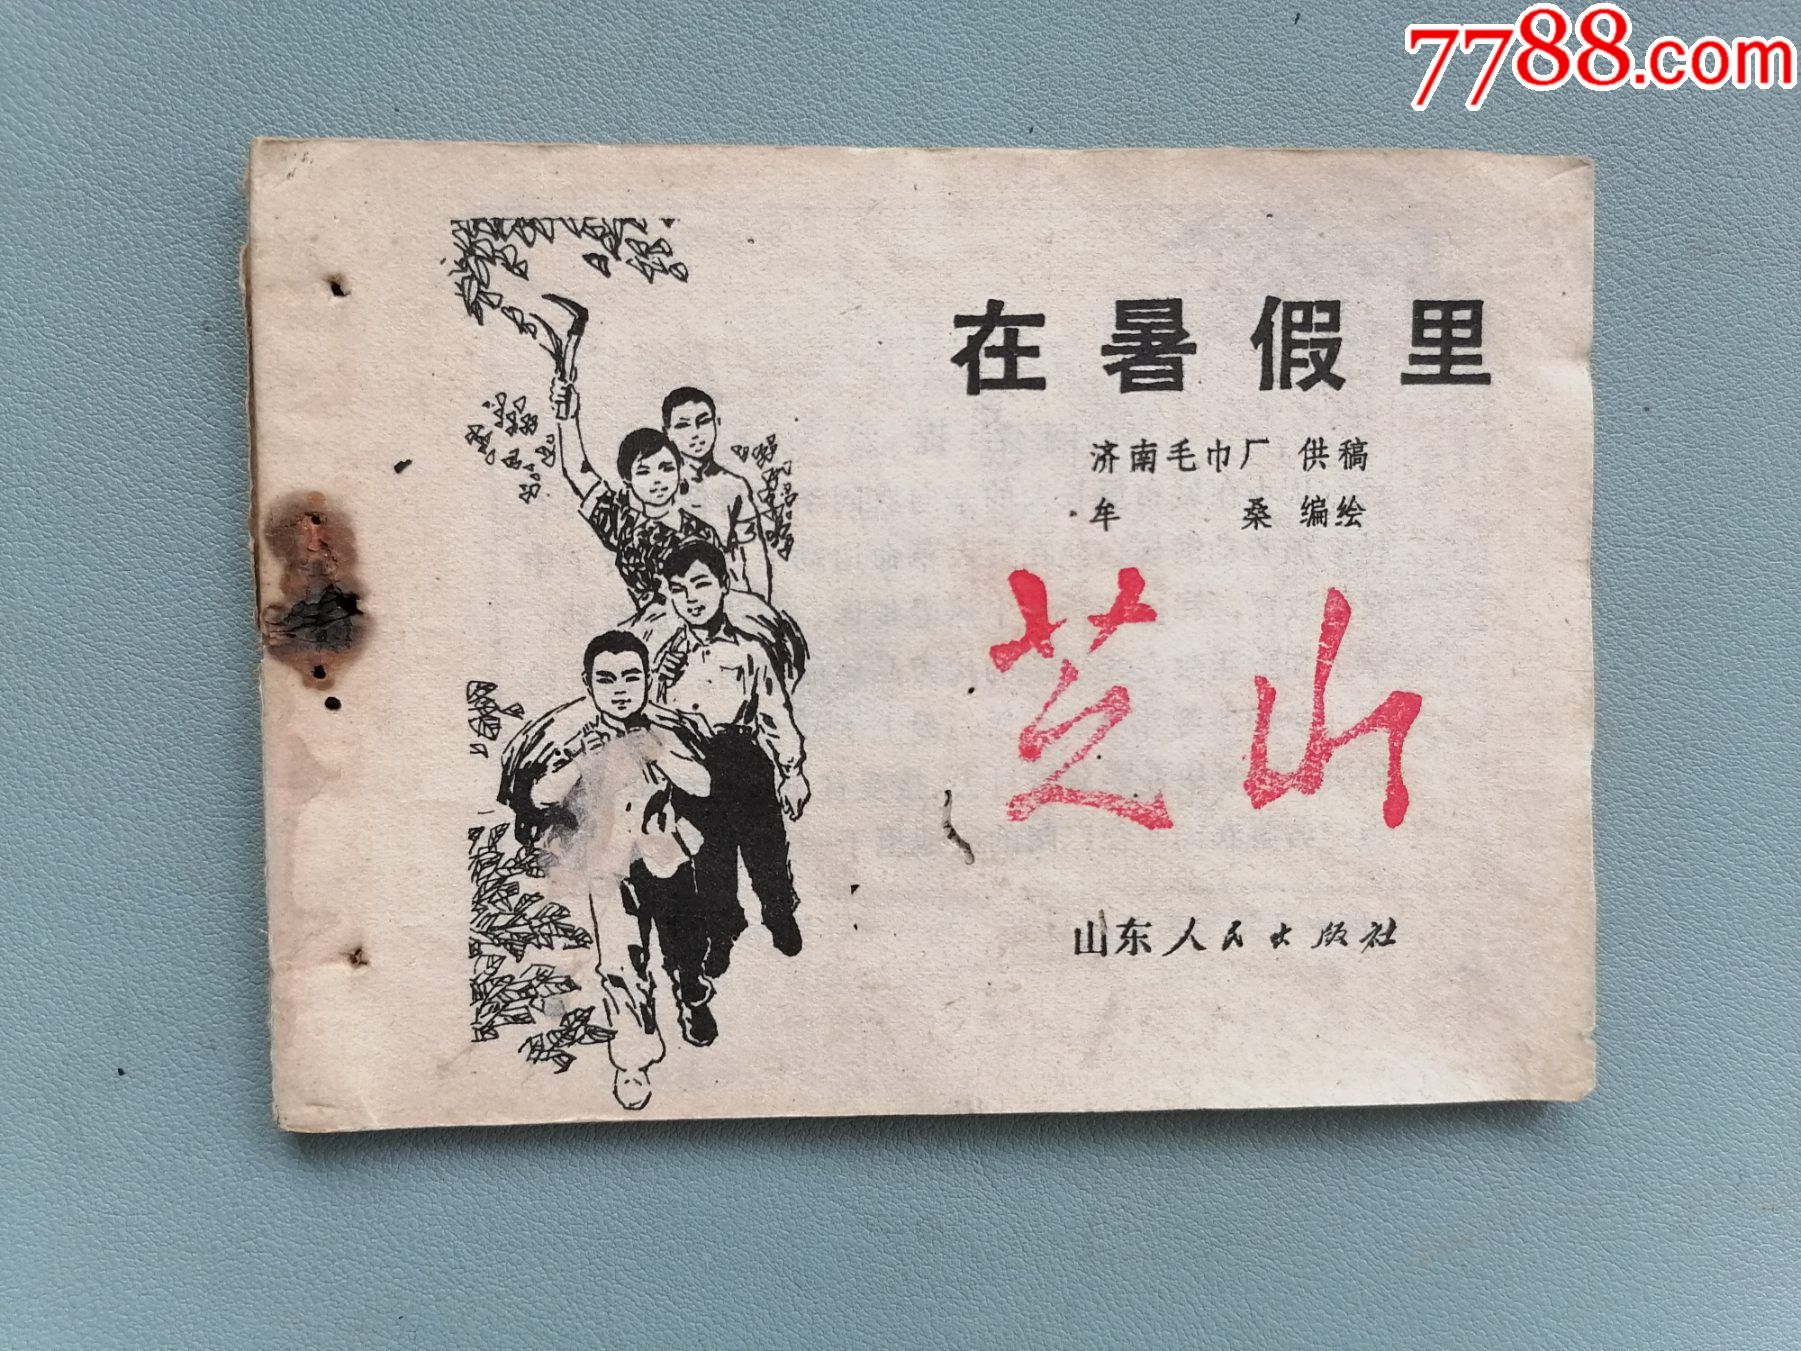 7788.com
在暑假里
济南毛巾厂 供稿
牟桑 编绘
芝山
山东人民出版社